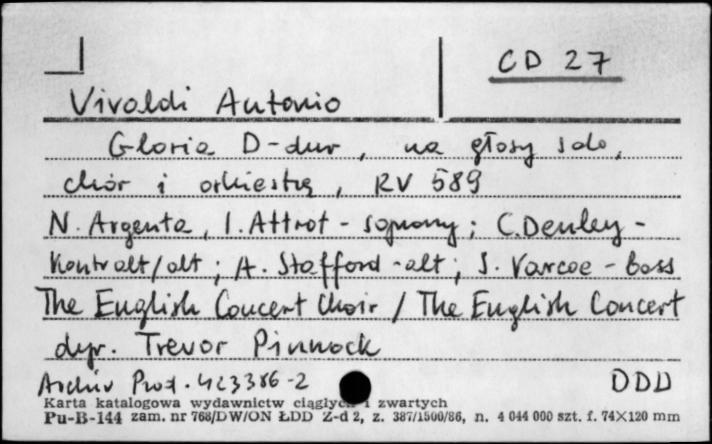 CD 27
Vivaldi Antonio
Gloria D-dur, na głosy solo,
chór i orkiestrę, RV 589
N. Argenta, I. Attrot - soprany; C. Denley -
kontralt/alt; A. Stafford - alt; S. Varcoe - bass
The English Concert Choir / The English Concert
dyr. Trevor Pinnock
Archiv Prod. 423386-2 DDD
Karta katalogowa wydawnictw ciągłych i zwartych
Pu-B-144 zam. nr 768/DW/ON ŁDD Z-d 2, z. 387/1500/86, n. 4 044 000 szt. f. 74×120 mm